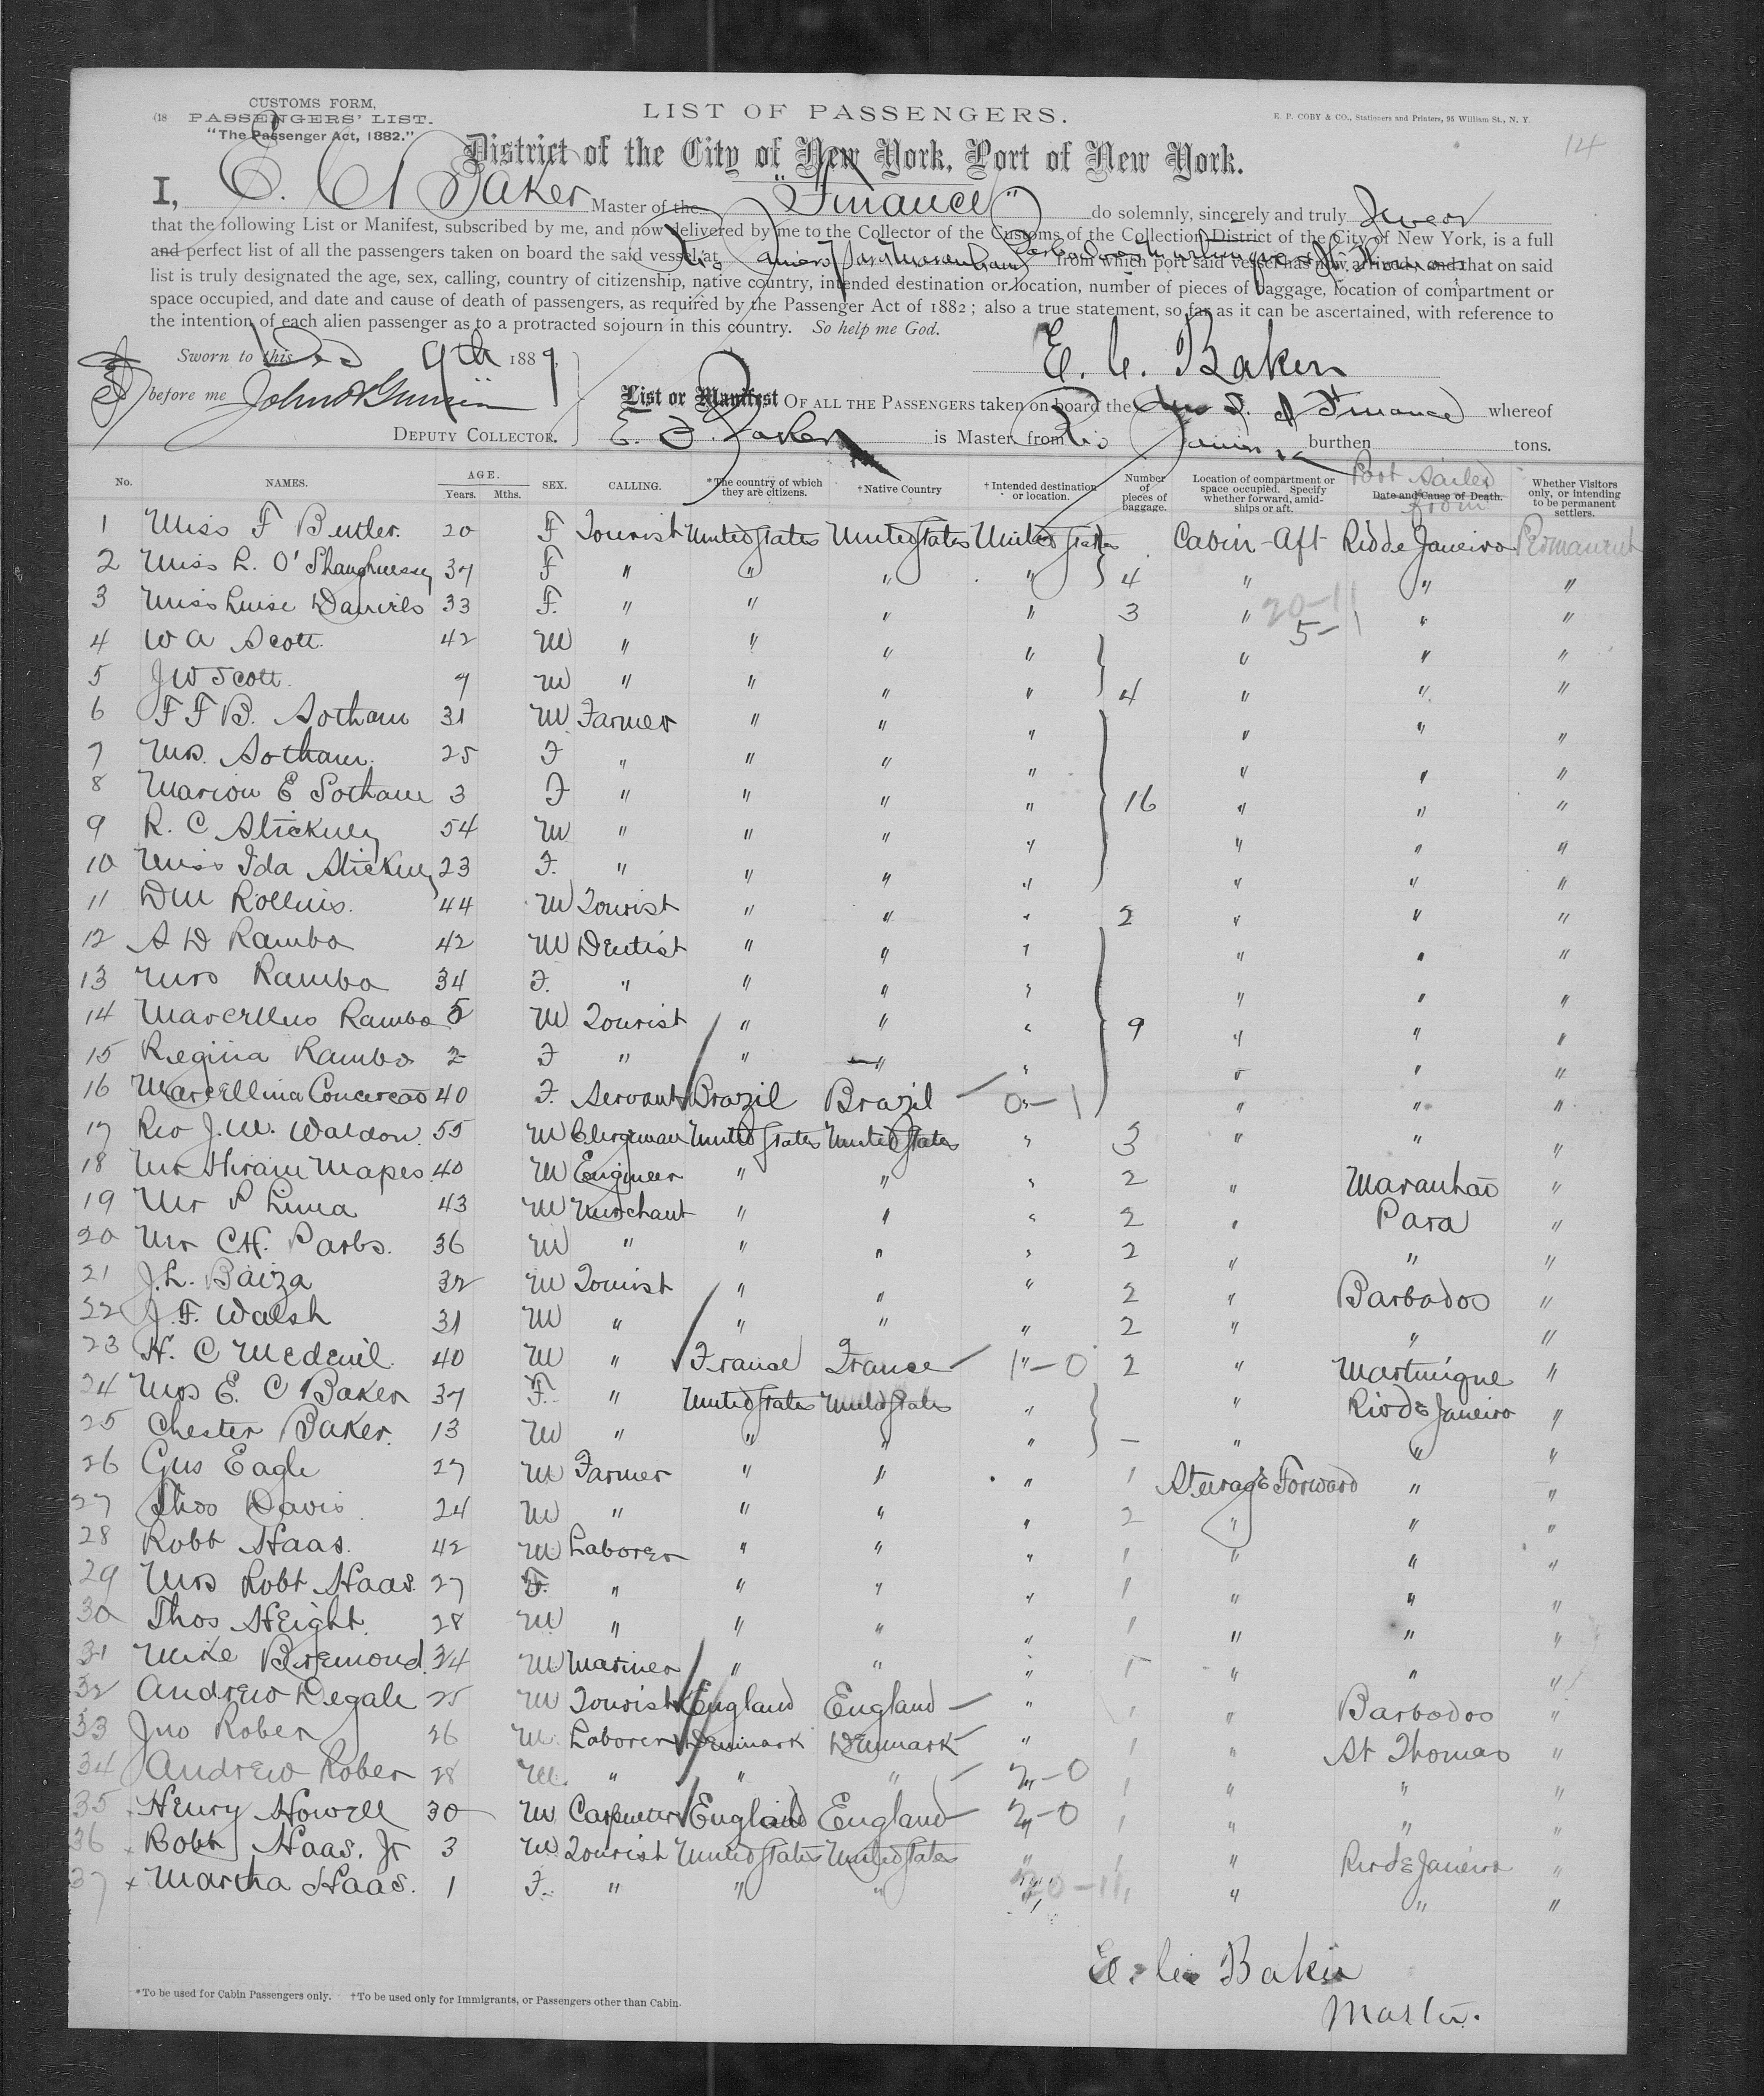 CUSTOMS FORM,
(18 PASSENGERS' LIST.
"The Passenger Act, 1882."
LIST OF PASSENGERS.
E. P. COBY & CO., Stationers and Printers, 95 William St., N. Y.
14
District of the City of New York, Port of New York.
I, E. C. Baker Master of the "Finance" do solemnly, sincerely and truly Swear
that the following List or Manifest, subscribed by me, and now delivered by me to the Collector of the Customs of the Collection District of the City of New York, is a full
and perfect list of all the passengers taken on board the said vessel at Rio Janeiro Para Maranham Barbados Martinique & St. Thomas from which port said vessel has now arrived; and that on said
list is truly designated the age, sex, calling, country of citizenship, native country, intended destination or location, number of pieces of baggage, location of compartment or
space occupied, and date and cause of death of passengers, as required by the Passenger Act of 1882; also a true statement, so far as it can be ascertained, with reference to
the intention of each alien passenger as to a protracted sojourn in this country. So help me God.
Sworn to this Dec 9th 1889
E. C. Baker
before me John
List or Manifest OF ALL THE PASSENGERS taken on board the S. S. Finance whereof
DEPUTY COLLECTOR. E. C. Baker is Master, from Rio Janeiro burthen tons.
No. NAMES. AGE. Years. Mths. SEX. CALLING. *The country of which they are citizens. †Native Country †Intended destination or location. Number of pieces of baggage. Location of compartment or space occupied. Specify whether forward, amidships or aft. Date and Cause of Death. Port Sailed from Whether Visitors only, or intending to be permanent settlers.
1 Miss F Butler. 20 F Tourist United States United States United States Cabin-Aft Rio de Janeiro Permanent
2 Miss L. O'Shaughnessy 37 F " " " " 4 " " "
3 Miss Luise Daniels 33 F. " " " " 3 " " "
20-11
5-
4 W A Scott. 42 M " " " " " " "
5 J W Scott. 9 M " " " " 4 " " "
6 F F B. Sotham 31 M Farmer " " " " " "
7 Mrs. Sotham. 25 F " " " " " " "
8 Marion E Sotham 3 F " " " " 16 " " "
9 R. C Stickney 54 M " " " " " " "
10 Miss Ida Stickney 23 F. " " " " " " "
11 D M Rollins. 44 M Tourist " " " 2 " " "
12 A D Rambo 42 M Dentist " " " " " "
13 Mrs Rambo 34 F. " " " " " " "
14 Marcellus Rambo 5 M Tourist " " " 9 " " "
15 Regina Rambo 2 F " " " " " " "
16 Marcellina Concercao 40 F. Servant Brazil Brazil 0-1 " " "
17 Rev J. W. Waldon. 55 M Clergyman United States United States " 3 " " "
18 Mr Hiram Mapes. 40 M Engineer " " " 2 " Maranhao "
19 Mr P Lima 43 M Merchant " " " 2 " Para "
20 Mr C.H. Parbs. 36 M " " " " 2 " " "
21 J. L. Baiza 32 M Tourist " " " 2 " Barbados "
22 J. F. Walsh 31 M " " " " 2 " " "
23 H. C Medenil. 40 M " France France 1"-0 2 " Martinique "
24 Mrs E. C Baker 37 F. " United States United States " " Rio de Janeiro "
25 Chester Baker. 13 M " " " " - " " "
26 Gus Eagle 27 M Farmer " " " 1 Steerage Forward " "
27 Thos Davis 24 M " " " " 2 " " "
28 Robt Haas. 42 M Laborer " " " 1 " " "
29 Mrs Robt Haas. 27 F. " " " " 1 " " "
30 Thos Height. 28 M " " " " 1 " " "
31 Mike Bremond. 34 M Mariner " " " 1 " " "
32 Andrew Degale 25 M Tourist England England " 1 " Barbados "
33 Jno Rober 26 M. Laborer Denmark Denmark " 1 " St Thomas "
34 Andrew Rober 28 M. " " " 2-0 1 " " "
35 Henry Howell 30 M Carpenter England England 2-0 1 " " "
36 Robt Haas. Jr 3 M Tourist United States United States " 1 " Rio de Janeiro "
37 Martha Haas. 1 F. " " " " 20-11 " " "
E. C. Baker
Master.
*To be used for Cabin Passengers only. †To be used only for Immigrants, or Passengers other than Cabin.